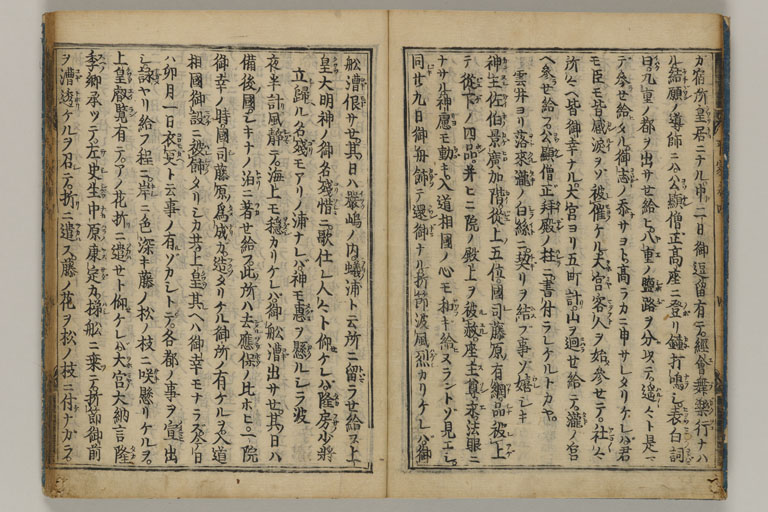 カ宿所皇居ニナル中二日御逗留有テ經會舞樂行ナハ
ル結願ノ導師ニハ公顯僧正高座ニ登リ鐘打鳴シ表白詞
曰九重ノ都ヲ出サセ給ヒ八重ノ鹽路ヲ分以テ遥々ト是マ
テ参セ給タル御志ノ忝サヨト高ラカニ申サレタリケレハ君
モ臣モ皆感涙ヲソ被催ケル大宮客人ヲ始参セテ社々
所々ヘ皆御幸ナル大宮ヨリ五町計山ヲ廻セ給テ瀧ノ宮
ヘ参セ給フ公顯僧正拜殿ノ柱ニ書付ラレケルトカヤ
雲井ヨリ落來瀧ノ白絲ニ契リヲ結フ事ソ嬉シキ
神主佐伯景廣加階從上五位國司藤原有綱品被上
テ從下ノ四品并ヒニ院ノ殿上ヲ被赦座主尊永法眼ニ
ナサル神慮モ動キ入道相國ノ心モ和キ給スラントソ見エシ
同廿九日御舟飾テ還御ナル折節波風烈カリケレハ御
舩漕假サセ其日ハ嚴嶋ノ内蟻浦ト云所ニ留ラセ給フ上
皇大明神ノ御名殘惜ニ歌仕レ人々ト仰ケレハ隆房少將
立歸ル名殘モアリノ浦ナレハ神モ惠ヲ懸ルシラ波
夜半計風靜テ海上モ穩カリケレハ御舩漕出サセ其日ハ
備後國シキナノ泊ニ著セ給フ此所ハ去應保ノ比ホヒ一院
御幸ノ時國司藤原爲成カ造タリケル御所ノ有ケルヲ入道
相國御設ニ被飾タリシカ共上皇其ヘハ御幸モナラス今日
ハ卯月一日衣更ト云事ノ有ソカシトテ各都ノ事ヲ宣出
シ詠ヤリ給フ程ニ岸ニ色深キ藤ノ松ノ枝ニ咲懸リケルヲ
上皇叡覧有テアノ花折ニ遣セト仰ケレハ大宮大納言隆
季卿承ツテ左史生中原康定カ梯舩ニ乗テ折節御前
ヲ漕透ケルヲ召テ折ニ遣ス藤ノ花ヲ松ノ枝ニ付ナカラ